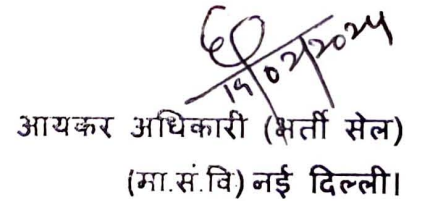 19/02/2024
आयकर अधिकारी (भर्ती सेल)
(मा.सं.वि) नई दिल्ली।